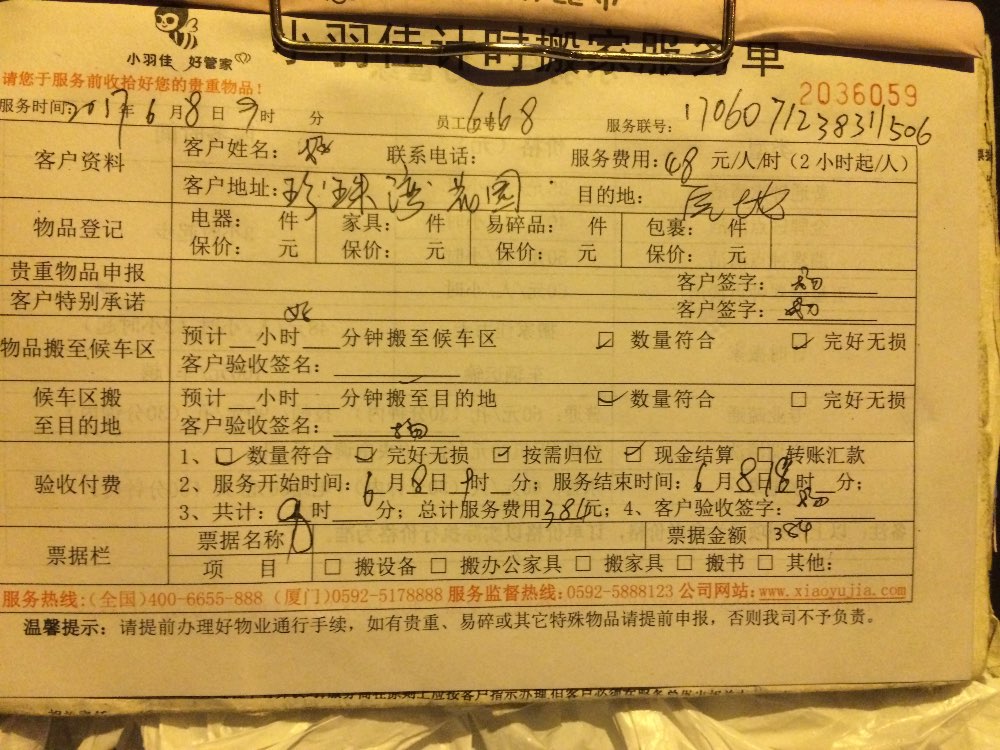 小羽佳 好管家
小羽佳计时搬家服务单
请您于服务前收拾好您的贵重物品!
2036059
服务时间: 2017年6月8日9时 分 员工工号: 668 服务联号: 1706071238311506
客户资料
客户姓名: 联系电话: 服务费用: 48 元/人/时(2小时起/人)
客户地址: 珍珠湾花园 目的地:
物品登记
电器: 件 家具: 件 易碎品: 件 包裹: 件
保价: 元 保价: 元 保价: 元 保价: 元
贵重物品申报 客户签字:
客户特别承诺 客户签字:
物品搬至候车区
预计__小时___分钟搬至候车区 ☑ 数量符合 ☑ 完好无损
客户验收签名:
候车区搬至目的地
预计__小时___分钟搬至目的地 ☑ 数量符合 □ 完好无损
客户验收签名:
验收付费
1、☑ 数量符合 ☑ 完好无损 ☑ 按需归位 ☑ 现金结算 □ 转账汇款
2、服务开始时间: 6月8日9时__分; 服务结束时间: 6月8日18时__分;
3、共计: 8时___分; 总计服务费用384元; 4、客户验收签字:
票据栏
票据名称 票据金额 384
项 目 □ 搬设备 □ 搬办公家具 □ 搬家具 □ 搬书 □ 其他:
服务热线:(全国)400-6655-888 (厦门)0592-5178888 服务监督热线:0592-5888123 公司网站:www.xiaoyujia.com
温馨提示: 请提前办理好物业通行手续,如有贵重、易碎或其它特殊物品请提前申报,否则我司不予负责。